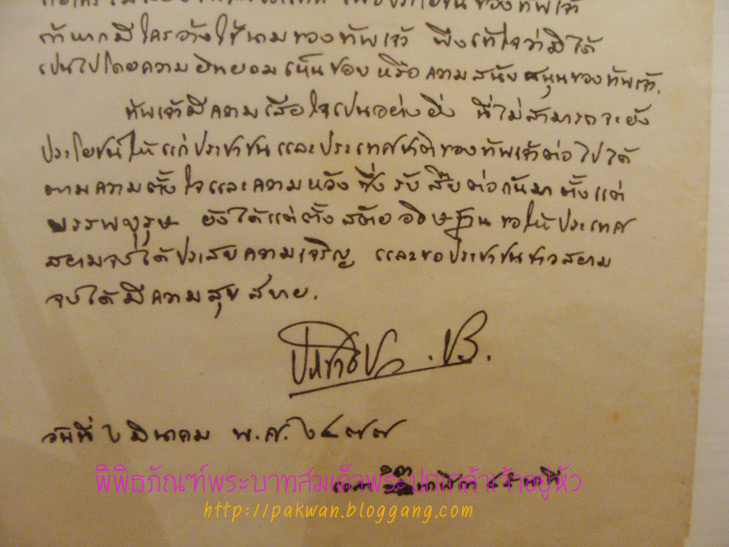 ถ้าหากมีใครอ้างใช้นามของข้าพเจ้า พึงเข้าใจว่ามิได้
เป็นไปโดยความยินยอมเห็นชอบ หรือความสนับสนุนของข้าพเจ้า.
ข้าพเจ้ามีความเสียใจเป็นอย่างยิ่ง ที่ไม่สามารถจะยัง
ประโยชน์ให้แก่ประชาชนและประเทศชาติของข้าพเจ้าต่อไปได้
ตามความตั้งใจและความหวัง ซึ่งรับสืบต่อกันมาตั้งแต่
บรรพบุรุษ ยังได้แต่ตั้งสัตยอธิษฐาน ขอให้ประเทศ
สยามจงได้ประสบความเจริญ และขอประชาชนชาวสยาม
จงได้มีความสุขสบาย.
ประชาธิปก . ปร.
วันที่ ๒ มีนาคม พ.ศ. ๒๔๗๗
พิพิธภัณฑ์พระบาทสมเด็จพระปกเกล้าเจ้าอยู่หัว
เวลา นาฬิกา ๔๕ นาที
http://pakwan.bloggang.com